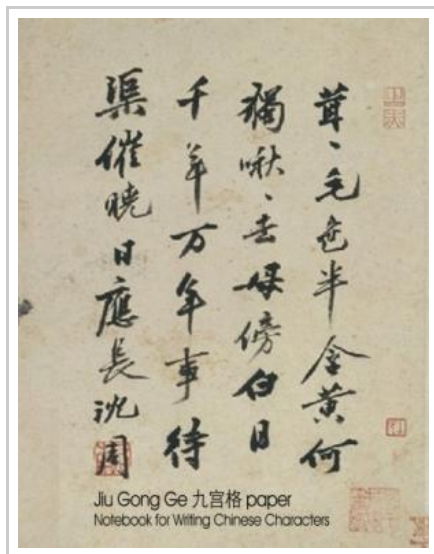 茸、毛色半含黃何
獨啾、去母傍白日
千年万年事待
渠催曉日應長沈周
Jiu Gong Ge 九宫格 paper
Notebook for Writing Chinese Characters